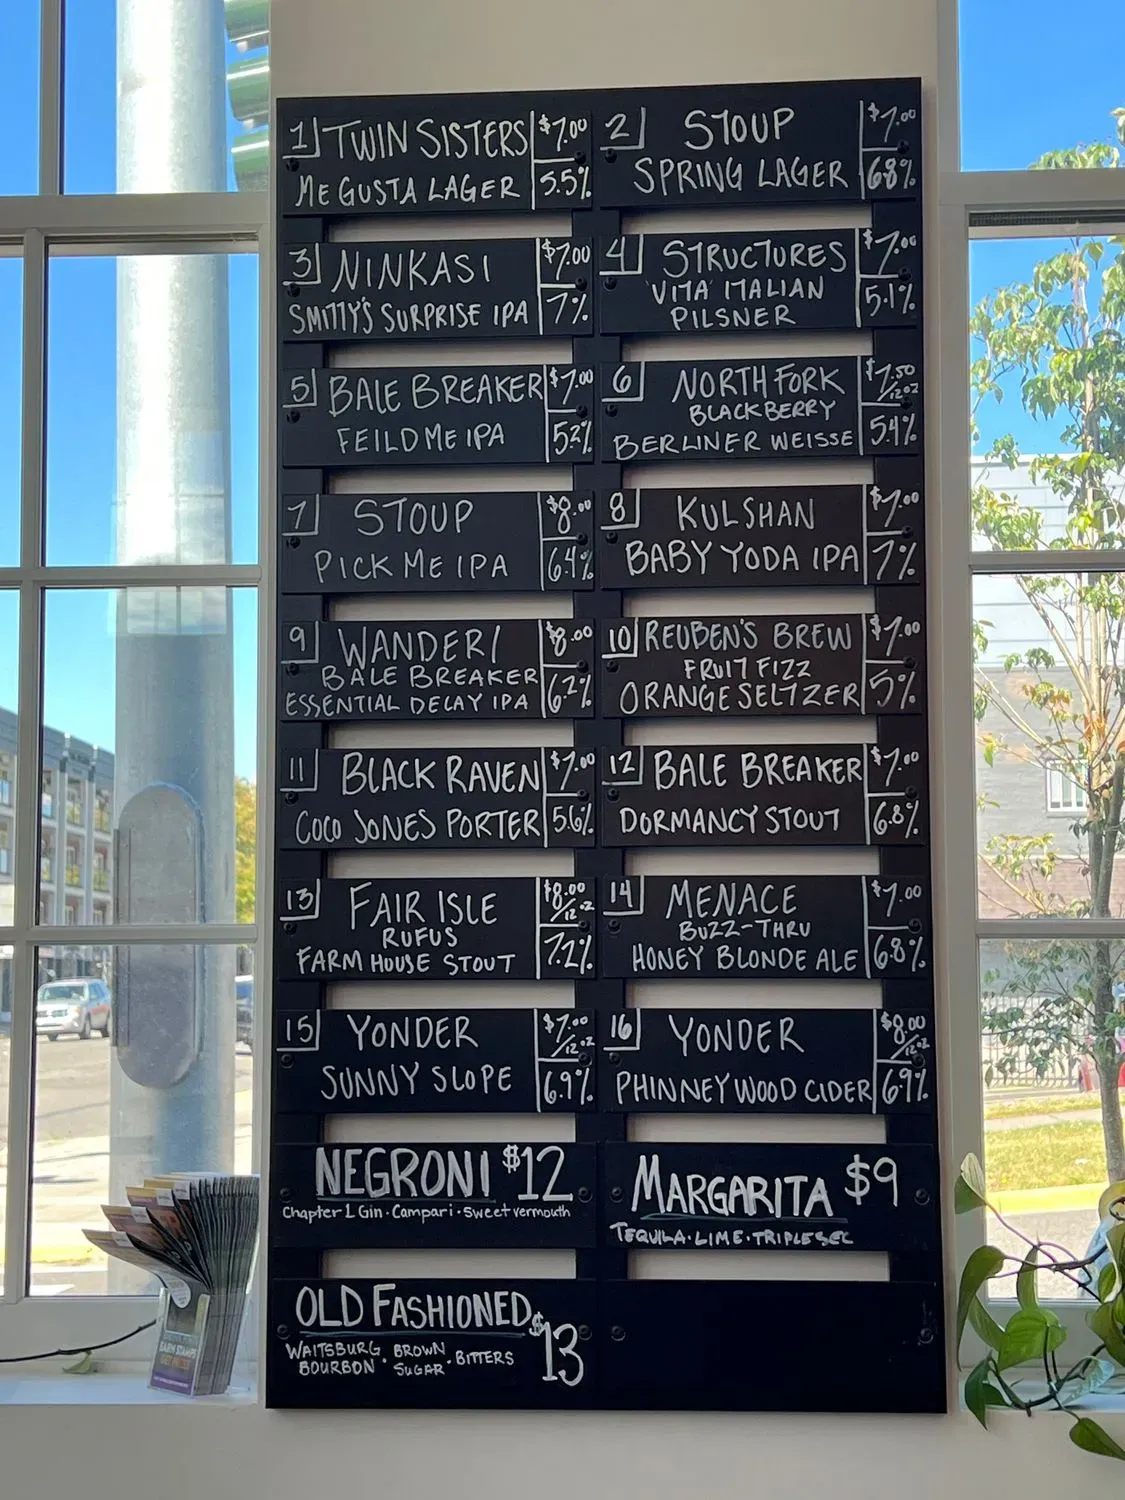 1 TWIN SISTERS $7.00
ME GUSTA LAGER 5.5%
2 STOUP $7.00
SPRING LAGER 6.8%
3 NINKASI $7.00
SMITTY'S SURPRISE IPA 7%
4 STRUCTURES $7.00
'VITA' ITALIAN
PILSNER 5.1%
5 BALE BREAKER $7.00
FEILD ME IPA 5.2%
6 NORTH FORK $7.50/12oz
BLACKBERRY
BERLINER WEISSE 5.4%
7 STOUP $8.00
PICK ME IPA 6.4%
8 KULSHAN $7.00
BABY YODA IPA 7%
9 WANDER/ $8.00
BALE BREAKER
ESSENTIAL DECAY IPA 6.2%
10 REUBEN'S BREW $7.00
FRUIT FIZZ
ORANGE SELTZER 5%
11 BLACK RAVEN $7.00
COCO JONES PORTER 5.6%
12 BALE BREAKER $7.00
DORMANCY STOUT 6.8%
13 FAIR ISLE $8.00/12oz
RUFUS
FARM HOUSE STOUT 7.2%
14 MENACE $7.00
BUZZ-THRU
HONEY BLONDE ALE 6.8%
15 YONDER $7.00/12oz
SUNNY SLOPE 6.9%
16 YONDER $8.00/12oz
PHINNEYWOOD CIDER 6.9%
NEGRONI $12
Chapter 1 Gin · Campari · Sweet vermouth
MARGARITA $9
TEQUILA · LIME · TRIPLE SEC
OLD FASHIONED $13
WAITSBURG BROWN
BOURBON · SUGAR · BITTERS
EARN STAMPS